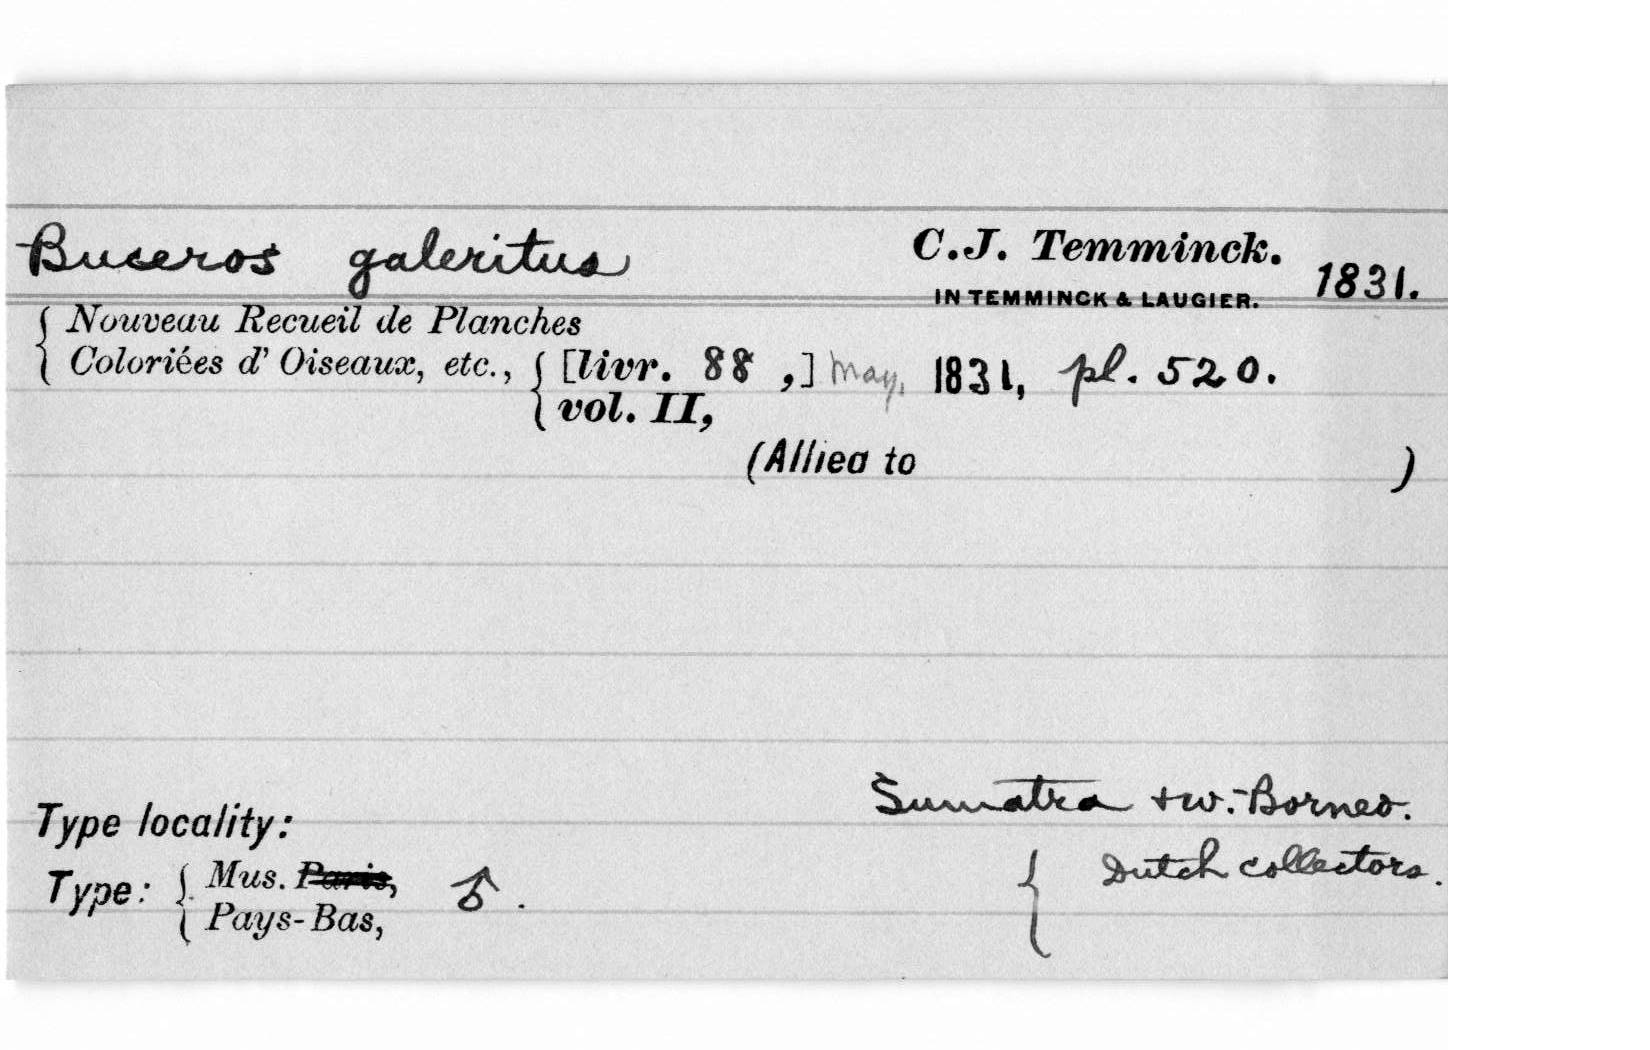 Buceros galeritus C.J. Temminck. 1831.
IN TEMMINCK & LAUGIER.
{ Nouveau Recueil de Planches
Coloriées d' Oiseaux, etc., { [livr. 88 ,] May, 1831, pl. 520.
vol. II,
(Allied to )
Sumatra + W. Borneo.
Type locality:
Type: { Mus. Paris, ♂. { Dutch collectors.
Pays-Bas,